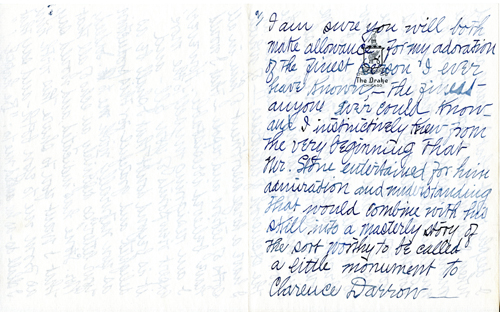 I am sure you will both
make allowance for my adoration
of the finest person I ever
The Drake
have known, – the finest
anyone ever could know –
and I instinctively knew from
the very beginning that
Mr. Stone entertained for him
admiration and understanding
that would combine with his
skill into a masterly story of
the sort worthy to be called
a little monument to
Clarence Darrow —